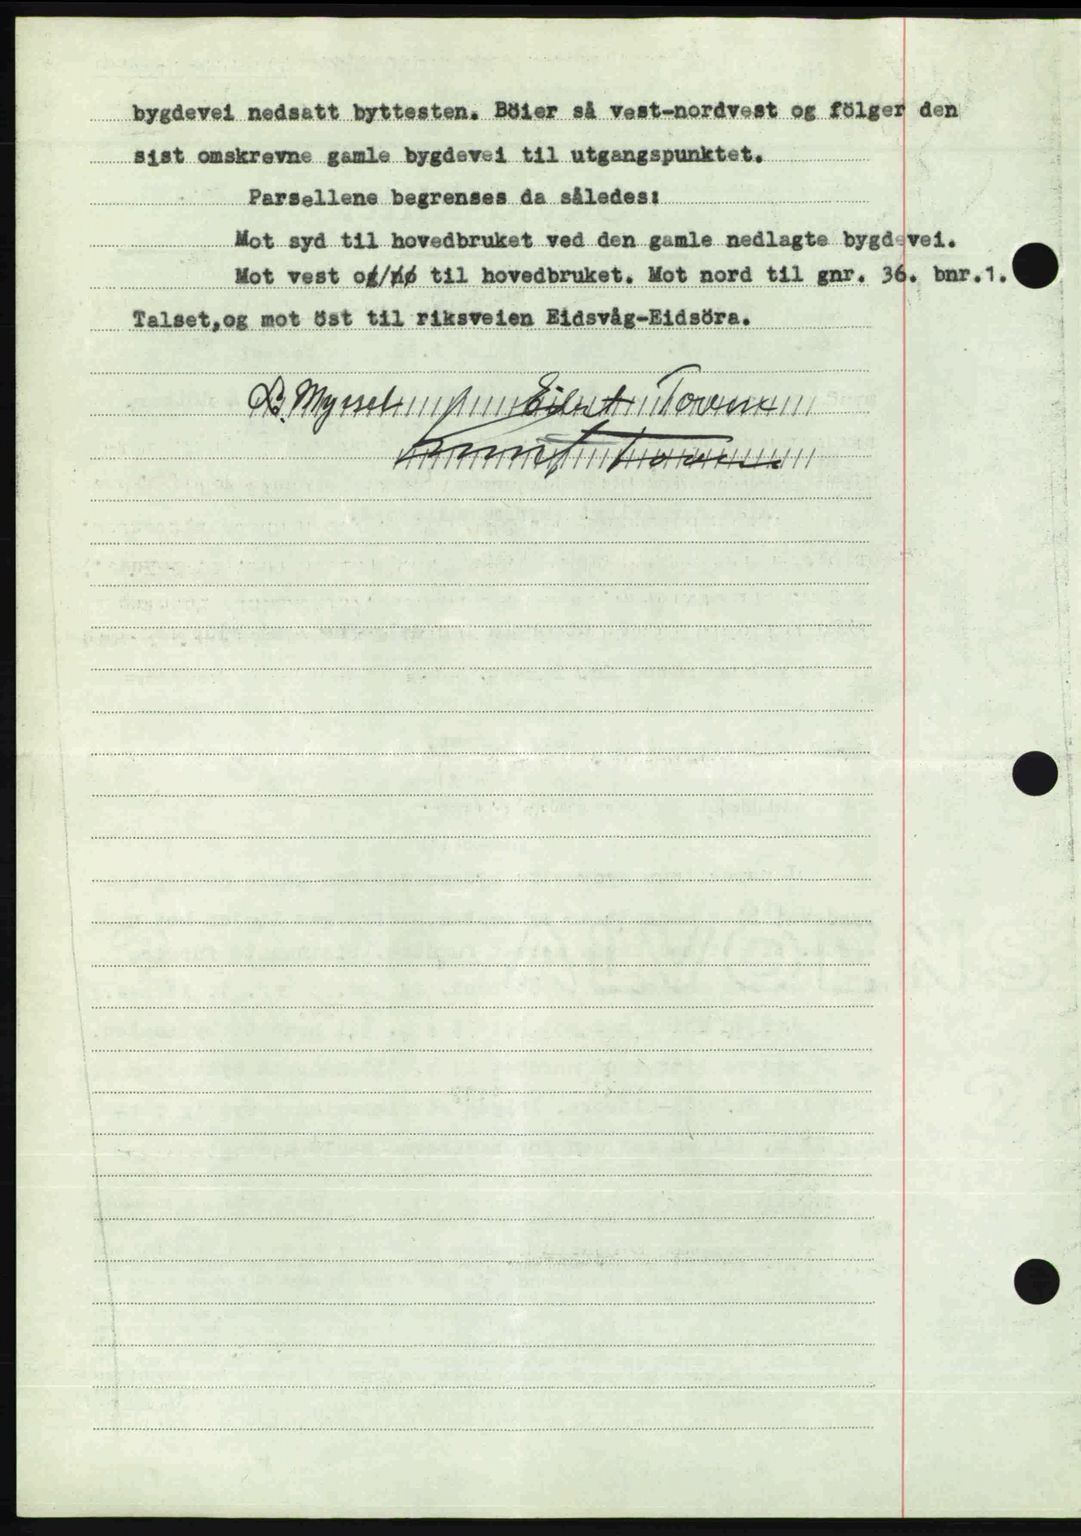 bygdevei nedsatt byttesten. Böier så vest-nordvest og fölger den
sist omskrevne gamle bygdevei til utgangspunktet.
Parsellene begrenses da således:
Mot syd til hovedbruket ved den gamle nedlagte bygdevei.
Mot vest og/nø til hovedbruket. Mot nord til gnr. 36. bnr.1.
Talset,og mot öst til riksveien Eidsvåg-Eidsöra.
Eilert Toven
Toven